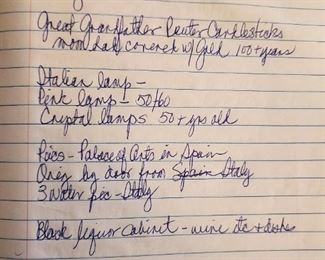 Great Grandfather Peuter Candlesticks
mom had covered w/ Gold 100+years
Italian lamp -
Pink lamp - 50/60
Crystal lamps 50+yrs old
Pics - Palace of Arts in Spain
Ones by door from Spain Italy
3 Water pic - Italy
Black liquor cabinet - wine etc + dishes